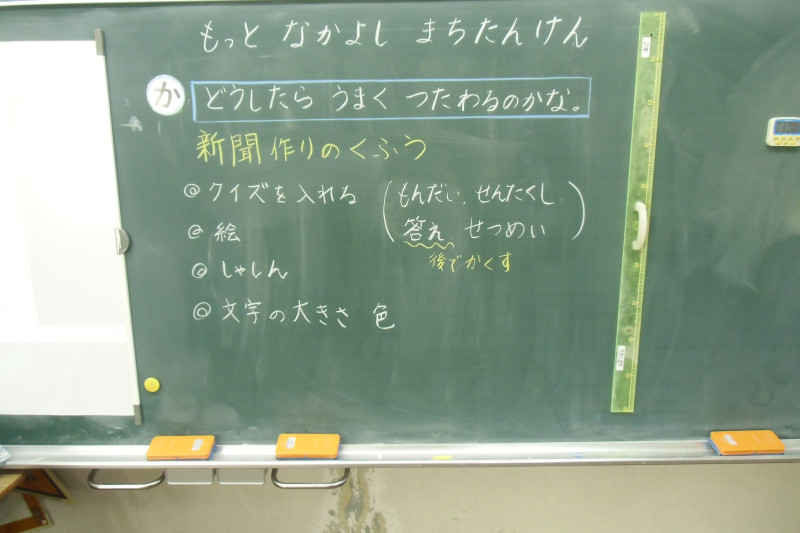 もっと なかよし まちたんけん
か どうしたら うまく つたわるのかな。
新聞作りのくふう
◎クイズを入れる (もんだい、せんたくし、
◎絵 答え、せつめい)
後でかくす
◎しゃしん
◎文字の大きさ 色